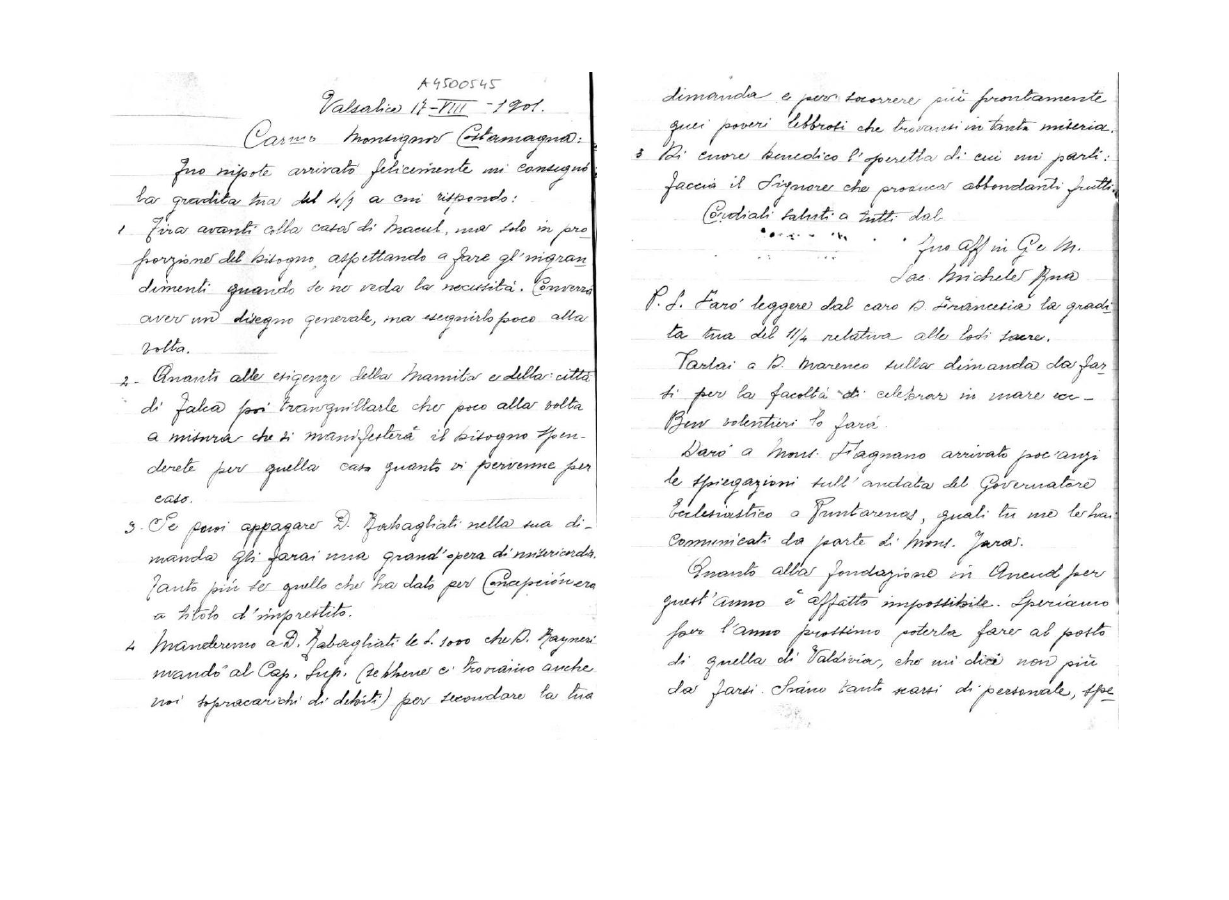 A4500545
Valsalice 17-VIII-1901.
Carmo Monsignor Costamagna:
Tuo nipote arrivato felicemente mi consegnò
la gradita tua del 4/7 a cui rispondo:
1 Tira avanti colla casa di Macul, ma solo in pro-
porzione del bisogno, aspettando a fare gl'ingran-
dimenti quando se ne veda la necessità. Converrà
aver un disegno generale, ma eseguirlo poco alla
volta.
2- Quanto alle esigenze della Mamita e della città
di Talca puoi tranquillarle che poco alla volta
a misura che si manifesterà il bisogno spen-
derete per quella casa quanto vi pervenne per
essa.
3- Se puoi appagare D. Rabagliati nella sua di-
manda gli farai una grand'opera di misericordia.
Tanto più se quello che ha dato per Concepción era
a titolo d'imprestito.
4 Manderemo a D. Rabagliati le L. 1000 che D. Rayneri
mandò al Cap. Sup. (sebbene ci troviamo anche
noi sopracarichi di debiti) per secondare la tua
dimanda e per socorrere più prontamente
quei poveri lebbrosi che trovansi in tanta miseria.
5 Di cuore benedico l'operetta di cui mi parli:
faccia il Signore che produca abbondanti frutti.
Cordiali saluti a tutti dal
Tuo Aff in G. e M.
Sac. Michele Rua
P. S. Farò leggere dal caro D. Francesia la gradi-
ta tua del 11/4 relativa alle lodi sacre.
Parlai a D. Marenco sulla dimanda da far-
si per la facoltà di celebrar in mare ecc-
Ben volentieri lo farà.
Darò a Mons. Fagnano arrivato poc'anzi
le spiegazioni sull'andata del Governatore
Ecclesiastico a Puntarenas, quali tu me le hai
comunicati da parte di Mons. Jara.
Quanto alla fondazione in Ancud per
quest'anno è affatto impossibile. Speriamo
l'anno prossimo poterla fare al posto
di quella di Valdivia, che mi dici non più
da farsi. Siamo tanti scarsi di personale, spe-